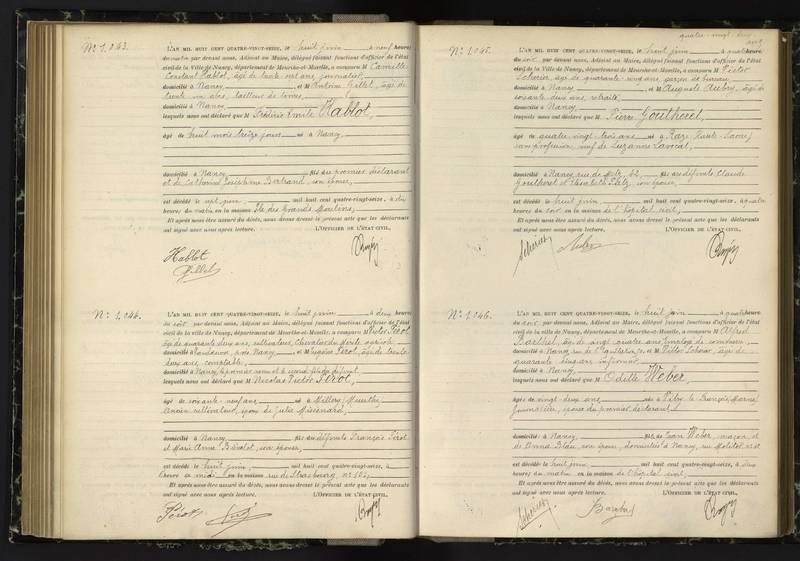 N° 1.043. L'AN MIL HUIT CENT QUATRE-VINGT-SEIZE, le huit juin, à neuf heures
du matin par devant nous, Adjoint au Maire, délégué faisant fonctions d'officier de l'état
civil de la Ville de Nancy, département de Meurthe-et-Moselle, a comparu M Camille
Constant Hablot, âgé de trente sept ans, journalier,
domicilié à Nancy, et M Antoine Gillet, âgé de
trente ans, tailleur de
domicilié à Nancy
lesquels nous ont déclaré que M Frédéric Emile Hablot,
âgé de huit mois treize jours né à Nancy
domicilié à Nancy, fils du premier déclarant
et de Catherine Joséphine Bertrand, son épouse,
est décédé le sept juin, mil huit cent quatre-vingt-seize, à dix
heures du matin, en la maison Ile des Grands Moulins,
Et après nous être assuré du décès, nous avons dressé le présent acte que les déclarants
ont signé avec nous après lecture. L'OFFICIER DE L'ÉTAT-CIVIL,
Hablot
Gillet
N° 1.044. L'AN MIL HUIT CENT QUATRE-VINGT-SEIZE, le huit juin, à deux heures
du soir par devant nous, Adjoint au Maire, délégué faisant fonctions d'officier de l'état
civil de la Ville de Nancy, département de Meurthe-et-Moselle, a comparu M Victor Pérot,
âgé de quarante deux ans, cultivateur, Chevalier du Mérite agricole,
domicilié à près Nancy et M Eugène Pérot, âgé de trente
deux ans, comptable,
domicilié à Nancy, le premier neveu et le second fils du défunt,
lesquels nous ont déclaré que M Nicolas Victor Pérot,
âgé de soixante-neuf ans né à Millery (Meurthe)
ancien cultivateur, époux de Julie
domicilié à Nancy, fils des défunts François Pérot
et Marie Anne son épouse,
est décédé le huit juin, mil huit cent quatre-vingt-seize, à
heure de midi en la maison rue de Strasbourg, n° 103,
Et après nous être assuré du décès, nous avons dressé le présent acte que les déclarants
ont signé avec nous après lecture. L'OFFICIER DE L'ÉTAT-CIVIL,
Pérot
quatre-vingt-deux
ans
N° 1.045. L'AN MIL HUIT CENT QUATRE-VINGT-SEIZE, le huit juin, à quatre heures
du soir par devant nous, Adjoint au Maire, délégué faisant fonctions d'officier de l'état
civil de la Ville de Nancy, département de Meurthe-et-Moselle, a comparu M Victor
Scherier, âgé de quarante cinq ans, garçon de bureau,
domicilié à Nancy et M Auguste Aubry, âgé de
soixante deux ans, retraité,
domicilié à Nancy
lesquels nous ont déclaré que M Pierre Gouthorel,
âgé de quatre-vingt trois ans né à Raze (Haute-Saône)
sans profession, veuf de Suzanne Lavocat,
domicilié à Nancy, rue de Metz, 62, fils des défunts Claude
Gouthorel et Elisabeth son épouse,
est décédé le huit juin, mil huit cent quatre-vingt-seize, à quatre
heures du soir en la maison de l'hôpital civil,
Et après nous être assuré du décès, nous avons dressé le présent acte que les déclarants
ont signé avec nous après lecture. L'OFFICIER DE L'ÉTAT-CIVIL,
Scherier
N° 1.046. L'AN MIL HUIT CENT QUATRE-VINGT-SEIZE, le huit juin, à quatre heures
du soir par devant nous, Adjoint au Maire, délégué faisant fonctions d'officier de l'état
civil de la Ville de Nancy, département de Meurthe-et-Moselle, a comparu M Alfred
Barthel, âgé de vingt quatre ans, employé de commerce,
domicilié à Nancy, rue de et M Victor Scherier, âgé de
quarante cinq ans,
domicilié à Nancy
lesquels nous ont déclaré que M Odille Weber,
âgée de vingt-deux ans née à Vitry le François (Marne)
journalière, épouse du premier déclarant,
domiciliée à Nancy, fille de Jean Weber, maçon, et
de Anna Blau, son épouse, domiciliés à Nancy, rue Molitor, n°
est décédée le huit juin, mil huit cent quatre-vingt-seize, à dix
heures du matin en la maison de l'hôpital civil,
Et après nous être assuré du décès, nous avons dressé le présent acte que les déclarants
ont signé avec nous après lecture. L'OFFICIER DE L'ÉTAT-CIVIL,
Scherier